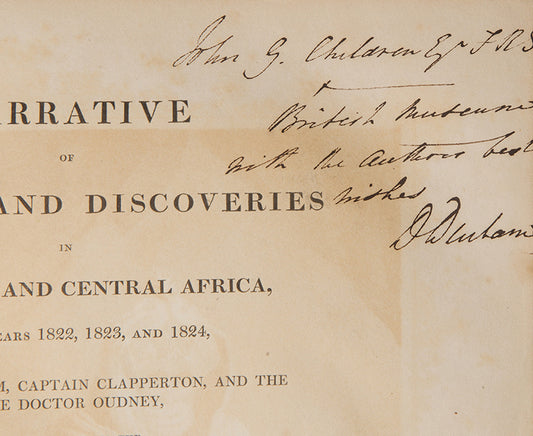 John G. Children Esqr F R S
British Museum
with the Authors best
wishes
D Denham
RRATIVE
OF
AND DISCOVERIES
IN
AND CENTRAL AFRICA,
EARS 1822, 1823, AND 1824,
M, CAPTAIN CLAPPERTON, AND THE
E DOCTOR OUDNEY,